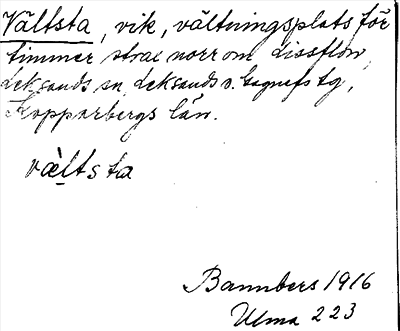 Vältsta, vik, vältningsplats för
timmer strax norr om Lissflon,
Leksands sn, Leksands o. Gagnefs tg,
Kopparbergs län.
væ̀ltsta
Bannbers 1916
Ulma 223